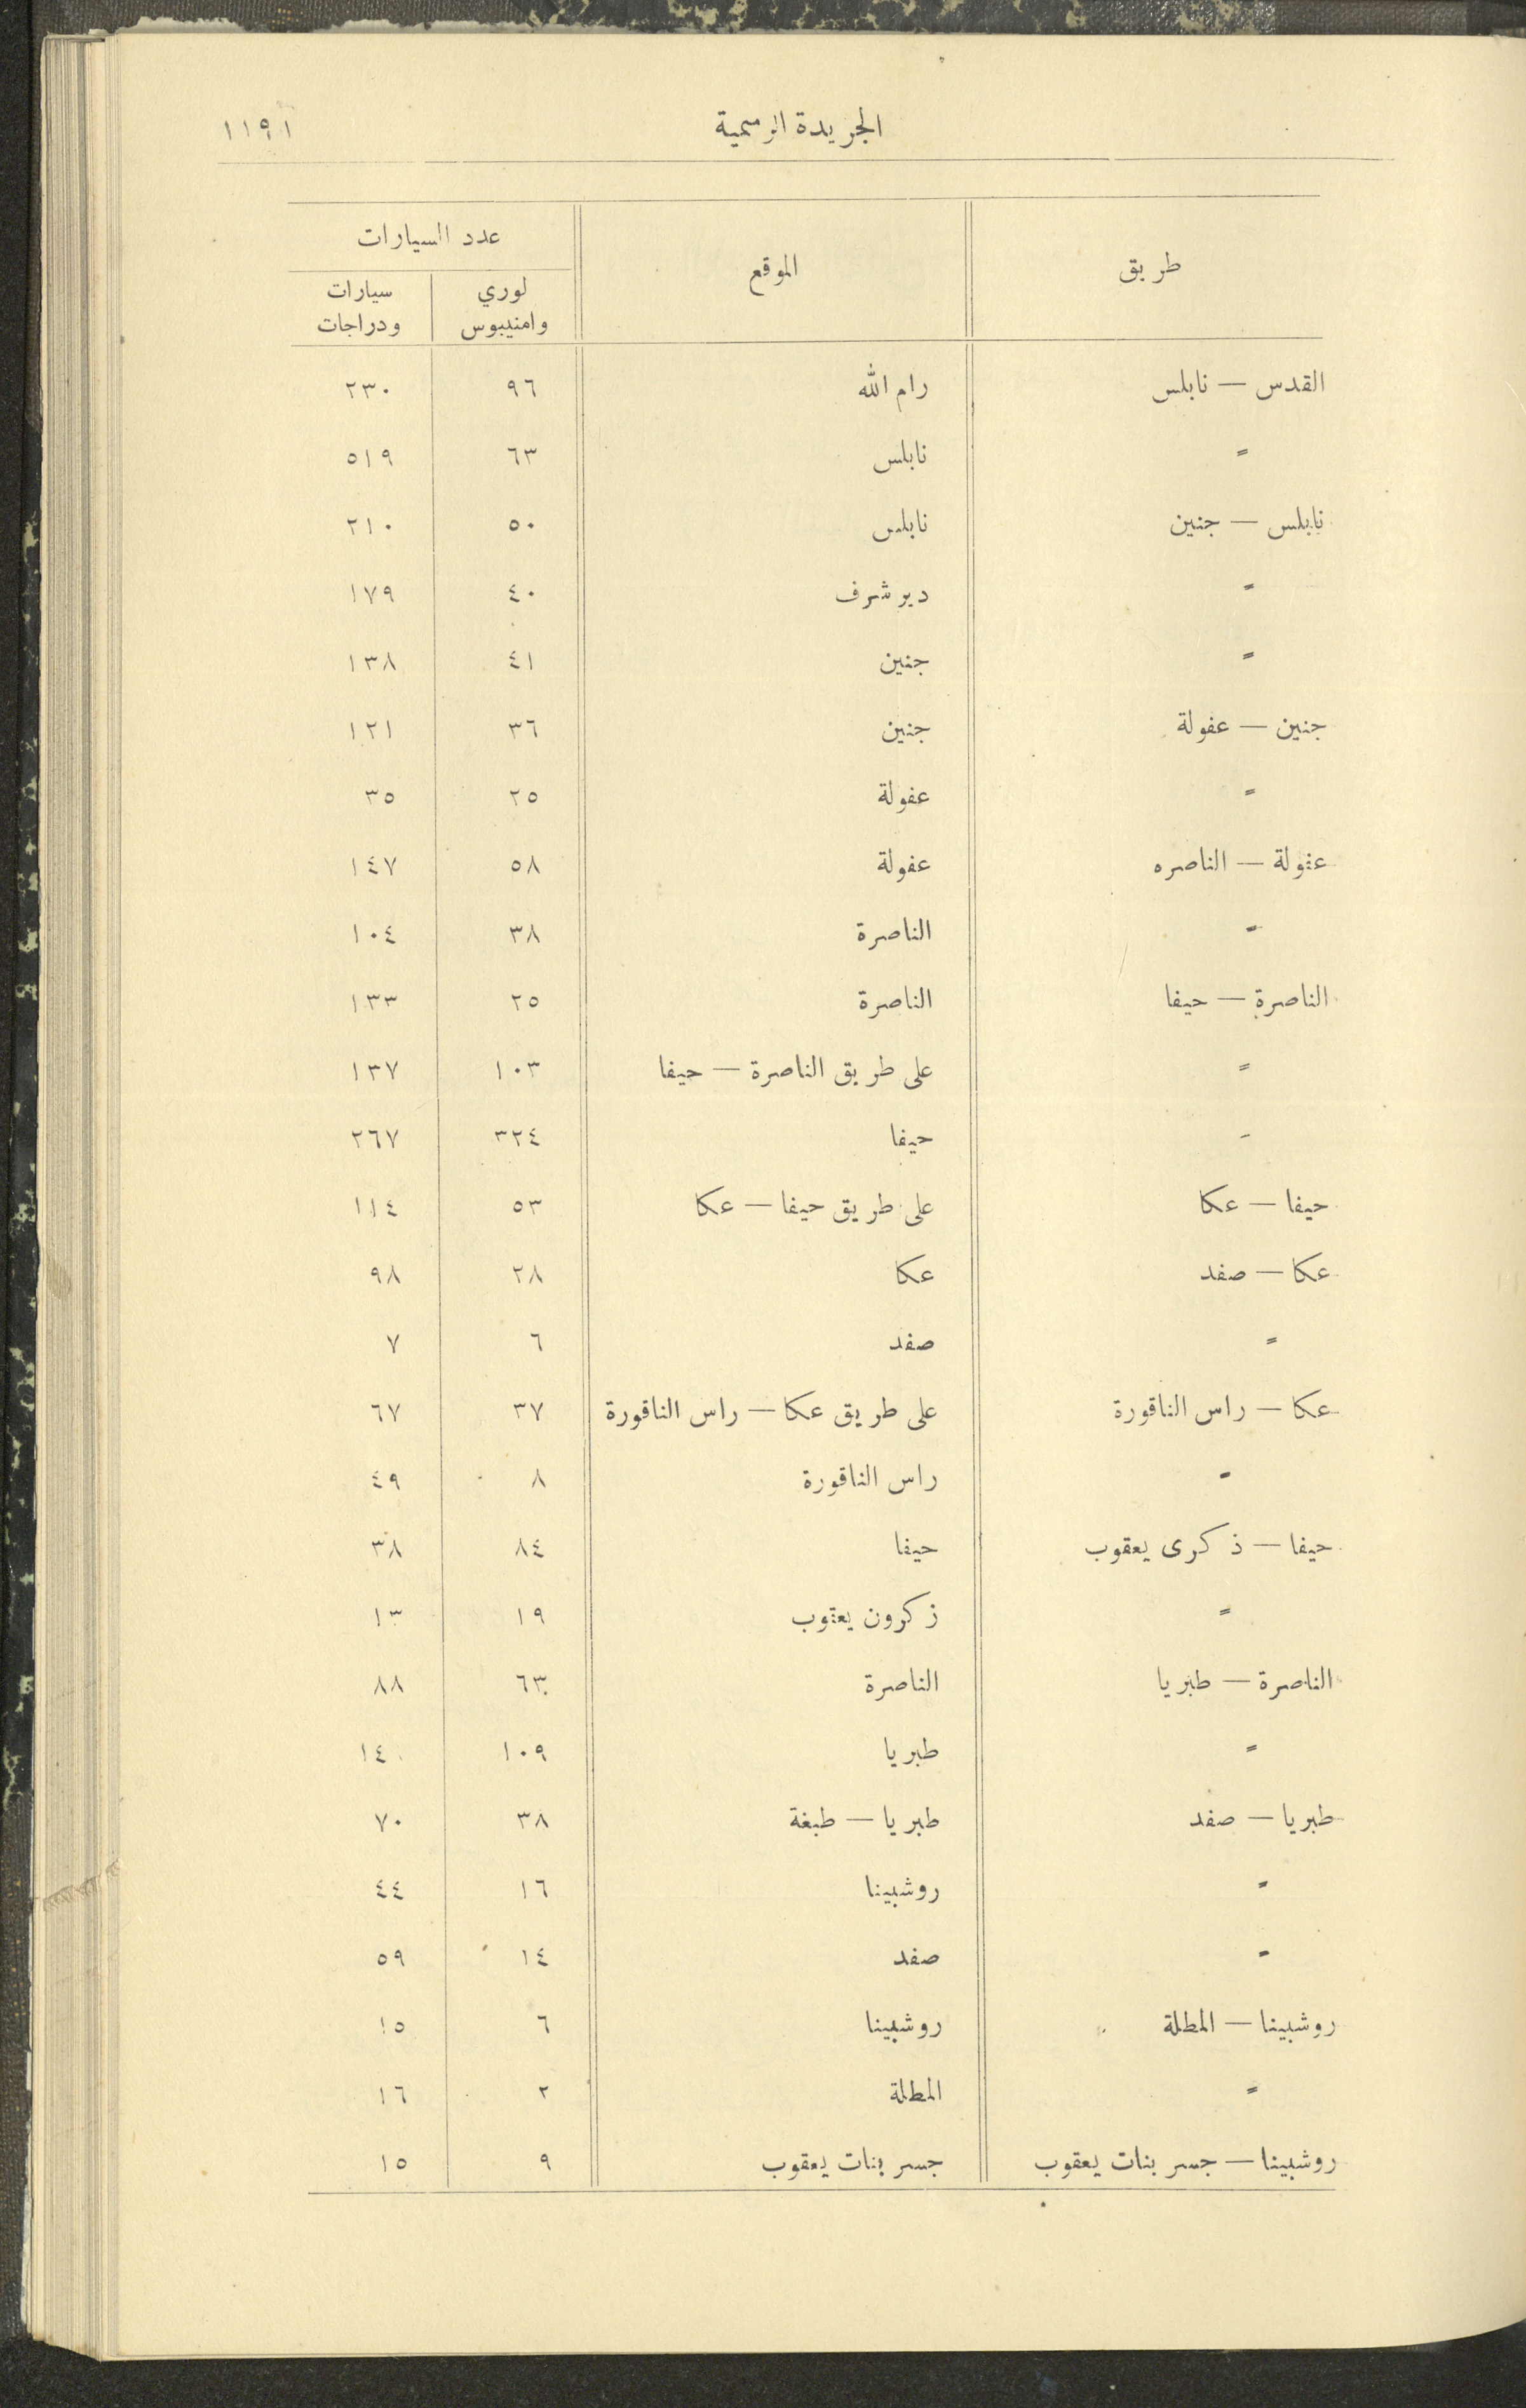 الجريدة الرسمية ١١٩١
طريق الموقع عدد السيارات
لوري وامنيبوس سيارات ودراجات
القدس — نابلس رام الله ٩٦ ٢٣٠
= نابلس ٦٣ ٥١٩
نابلس — جنين نابلس ٥٠ ٢١٠
= دير شرف ٤٠ ١٧٩
= جنين ٤١ ١٣٨
جنين — عفولة جنين ٣٦ ١٢١
= عفولة ٢٥ ٣٥
عفولة — الناصره عفولة ٥٨ ١٤٧
= الناصرة ٣٨ ١٠٤
الناصرة — حيفا الناصرة ٢٥ ١٣٣
= على طريق الناصرة — حيفا ١٠٣ ١٣٧
= حيفا ٣٢٤ ٢٦٧
حيفا — عكا على طريق حيفا — عكا ٥٣ ١١٤
عكا — صفد عكا ٢٨ ٩٨
= صفد ٦ ٧
عكا — راس الناقورة على طريق عكا — راس الناقورة ٣٧ ٦٧
= راس الناقورة ٨ ٤٩
حيفا — ذكرى يعقوب حيفا ٨٤ ٣٨
= زكرون يعقوب ١٩ ١٣
الناصرة — طبريا الناصرة ٦٣ ٨٨
= طبريا ١٠٩ ١٤٠
طبريا — صفد طبريا — طبغة ٣٨ ٧٠
= روشبينا ١٦ ٤٤
= صفد ١٤ ٥٩
روشبينا — المطلة روشبينا ٦ ١٥
= المطلة ٢ ١٦
روشبينا — جسر بنات يعقوب جسر بنات يعقوب ٩ ١٥